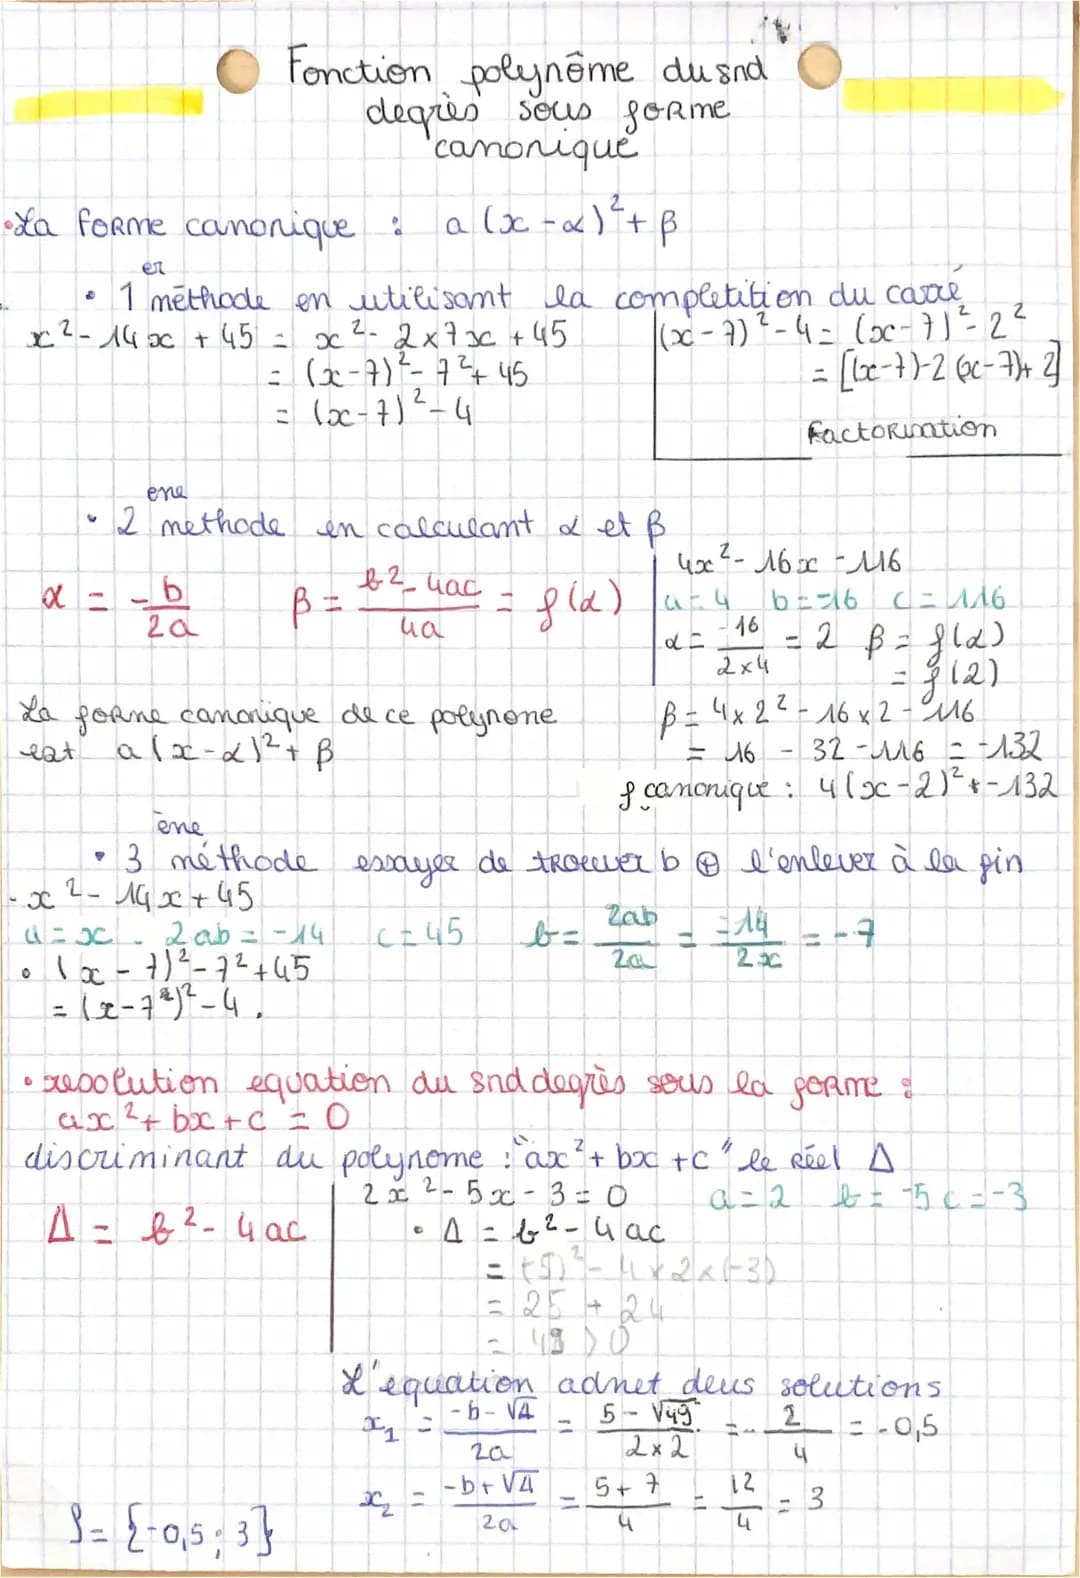 Fonction polynôme du snd
degrès sous forme
canonique
• La forme canonique : a (x - α)² + β
• 1er méthode en utilisant la completition du carré
x² - 14x + 45 = x² - 2×7x + 45
= (x-7)² - 7² + 45
= (x-7)² - 4
(x-7)² - 4 = (x-7)² - 2²
= [(x-7)-2 (x-7)+ 2]
Factorisation
• 2ene methode en calculant α et β
α = - b/2a β = b² - 4ac/4a = f(α)
4x² - 16x - 116
a = 4 b = -16 c = 116
α = -16/2×4 = 2 β = f(α)
= f(2)
La forne canonique de ce polynone
est a (x-α)² + β
β = 4 × 2² - 16 × 2 - 116
= 16 - 32 - 116 = -132
f canonique : 4(x-2)² + -132
• 3ène méthode essayer de trouver b ⊕ l'enlever à la fin
- x² - 14x + 45
a = x - 2ab = -14 c = 45 b = 2ab/2a = -14/2x = -7
• (x - 7)² - 7² + 45
= (x - 7²)² - 4.
• resolution equation du snd degrès sous la forme :
ax² + bx + c = 0
discriminant du polynome : "ax² + bx + c" le réel Δ
Δ = b² - 4ac
2x² - 5x - 3 = 0 a = 2 b = -5 c = -3
• Δ = b² - 4ac
= (-5)² - 4 × 2 × (-3)
= 25 + 24
= 49 > 0
L'equation adnet deus solutions
x₁ = -b - √Δ/2a = 5 - √49/2×2 = - 2/4 = -0,5
x₂ = -b + √Δ/2a = 5 + 7/4 = 12/4 = 3
S = {-0,5 ; 3}